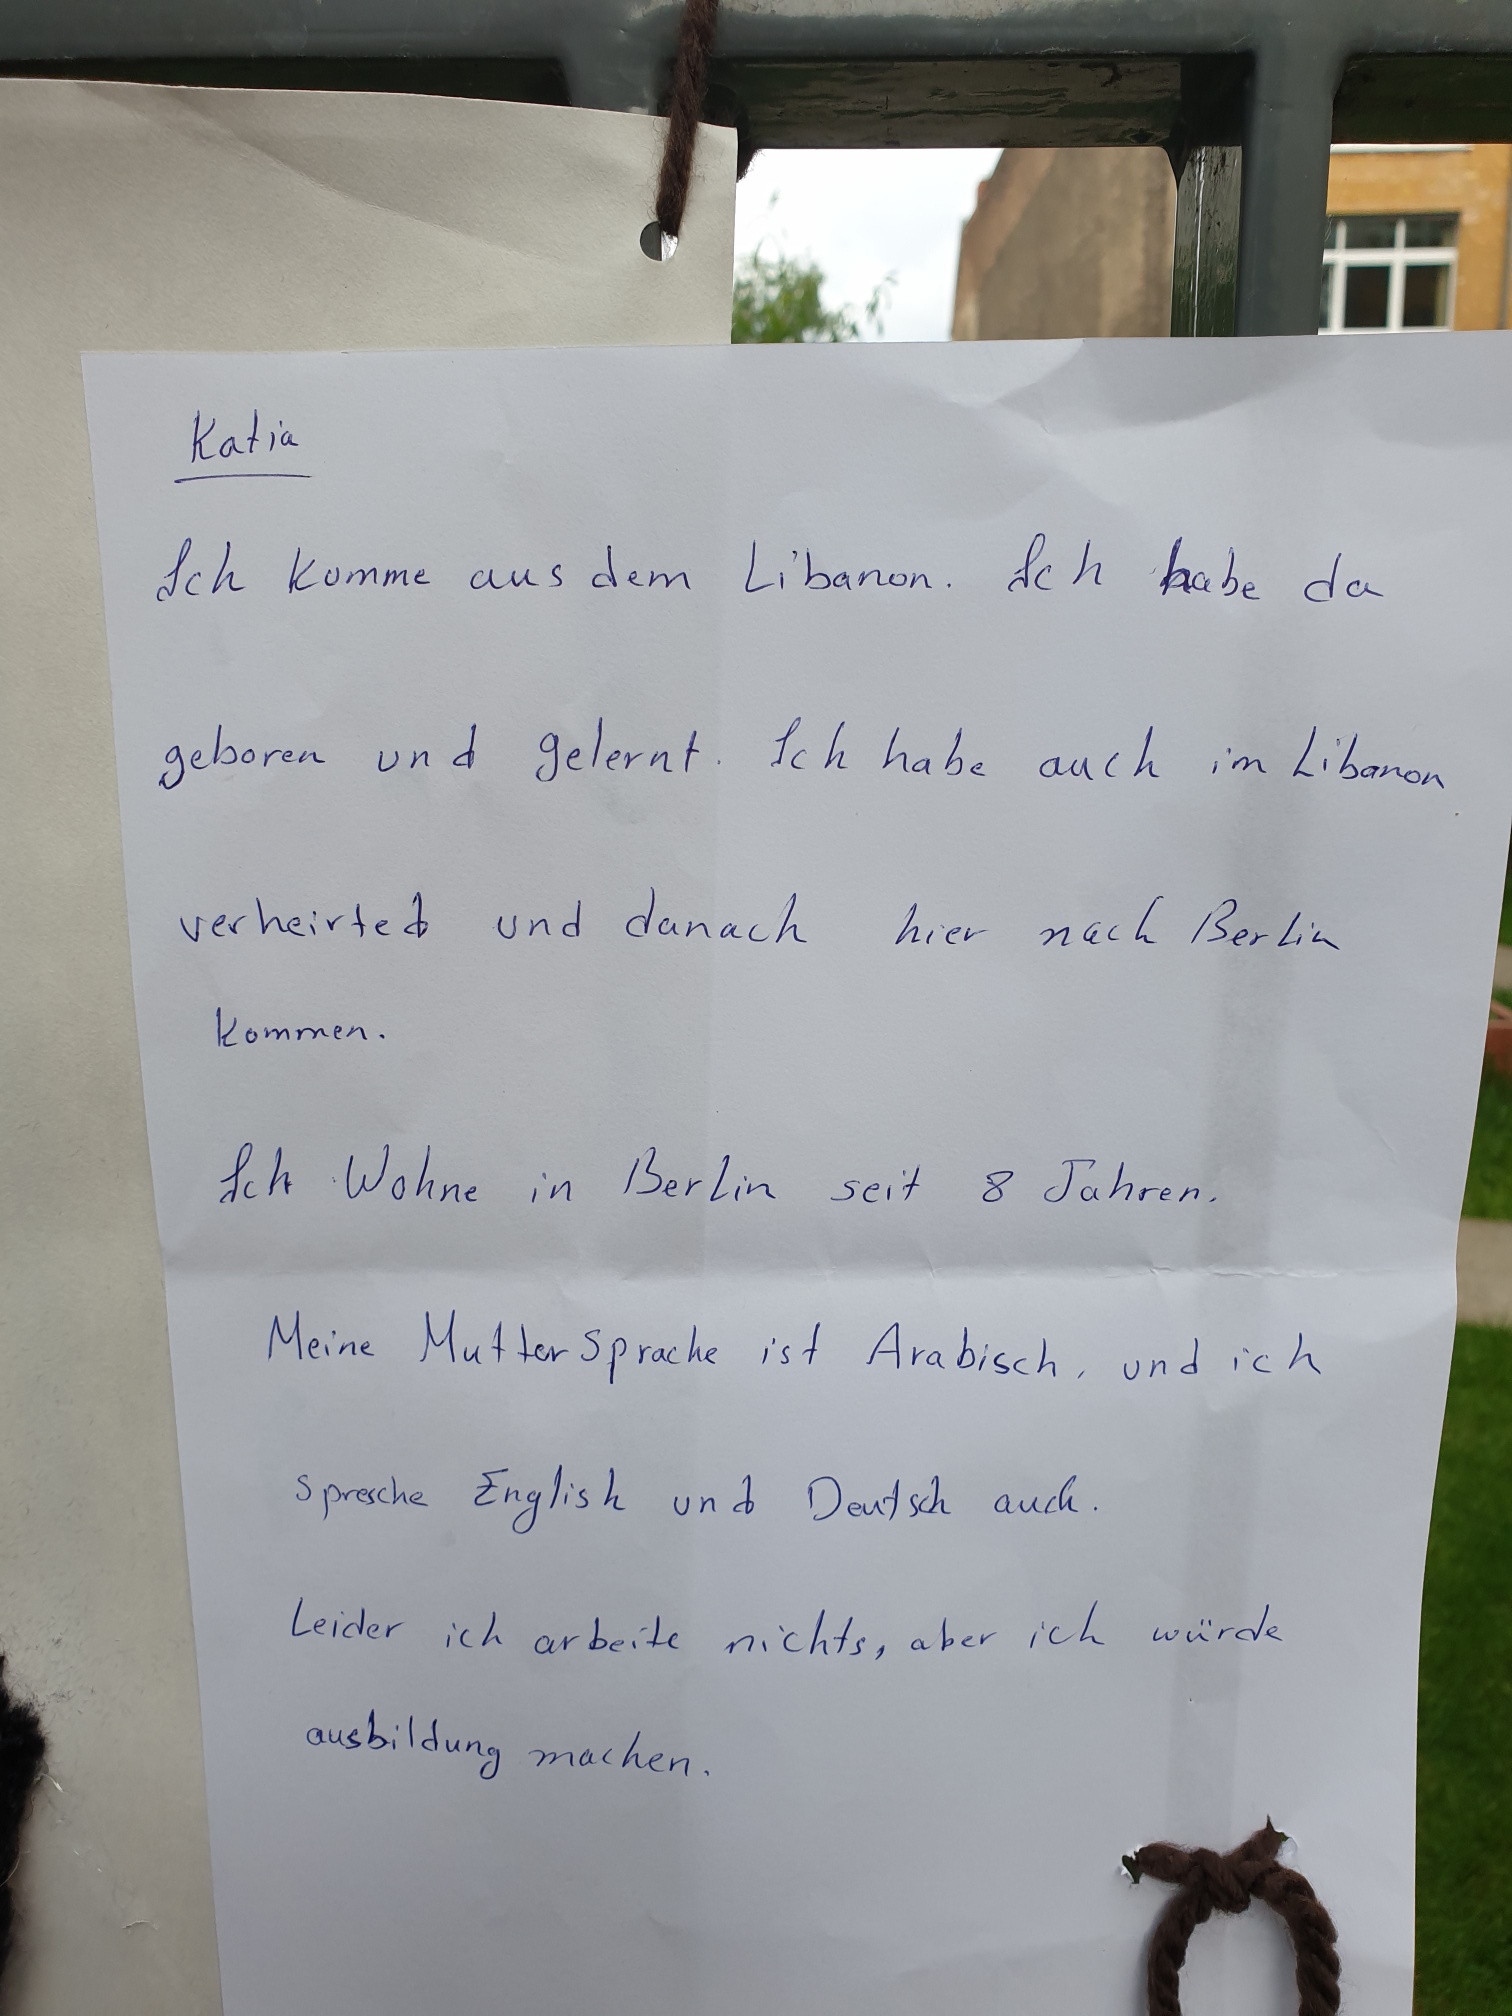 Katia
Ich komme aus dem Libanon. Ich habe da
geboren und gelernt. Ich habe auch im Libanon
verheirted und danach hier nach Berlin
kommen.
Ich Wohne in Berlin seit 8 Jahren.
Meine MutterSprache ist Arabisch, und ich
spresche English und Deutsch auch.
Leider ich arbeite nichts, aber ich würde
ausbildung machen.